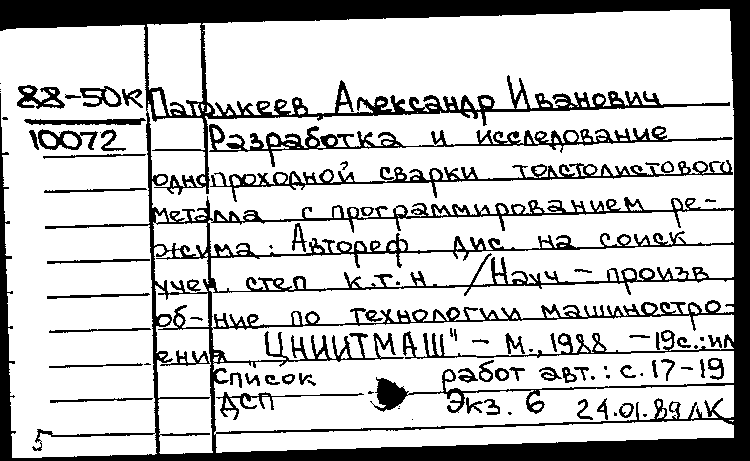 88-50к Патрикеев, Александр Иванович
10072 Разработка и исследование
однопроходной сварки толстолистового
металла с программированием ре-
жима: Автореф дис. на соиск
учен. степ к.т.н. /Науч-произв
об-ние по технологии машиностро-
ения "ЦНИИТМАШ" - М., 1988 - 19с.:ил
Список работ авт.: с. 17-19
ДСП Экз. 6 24.01.89 ЛК
5